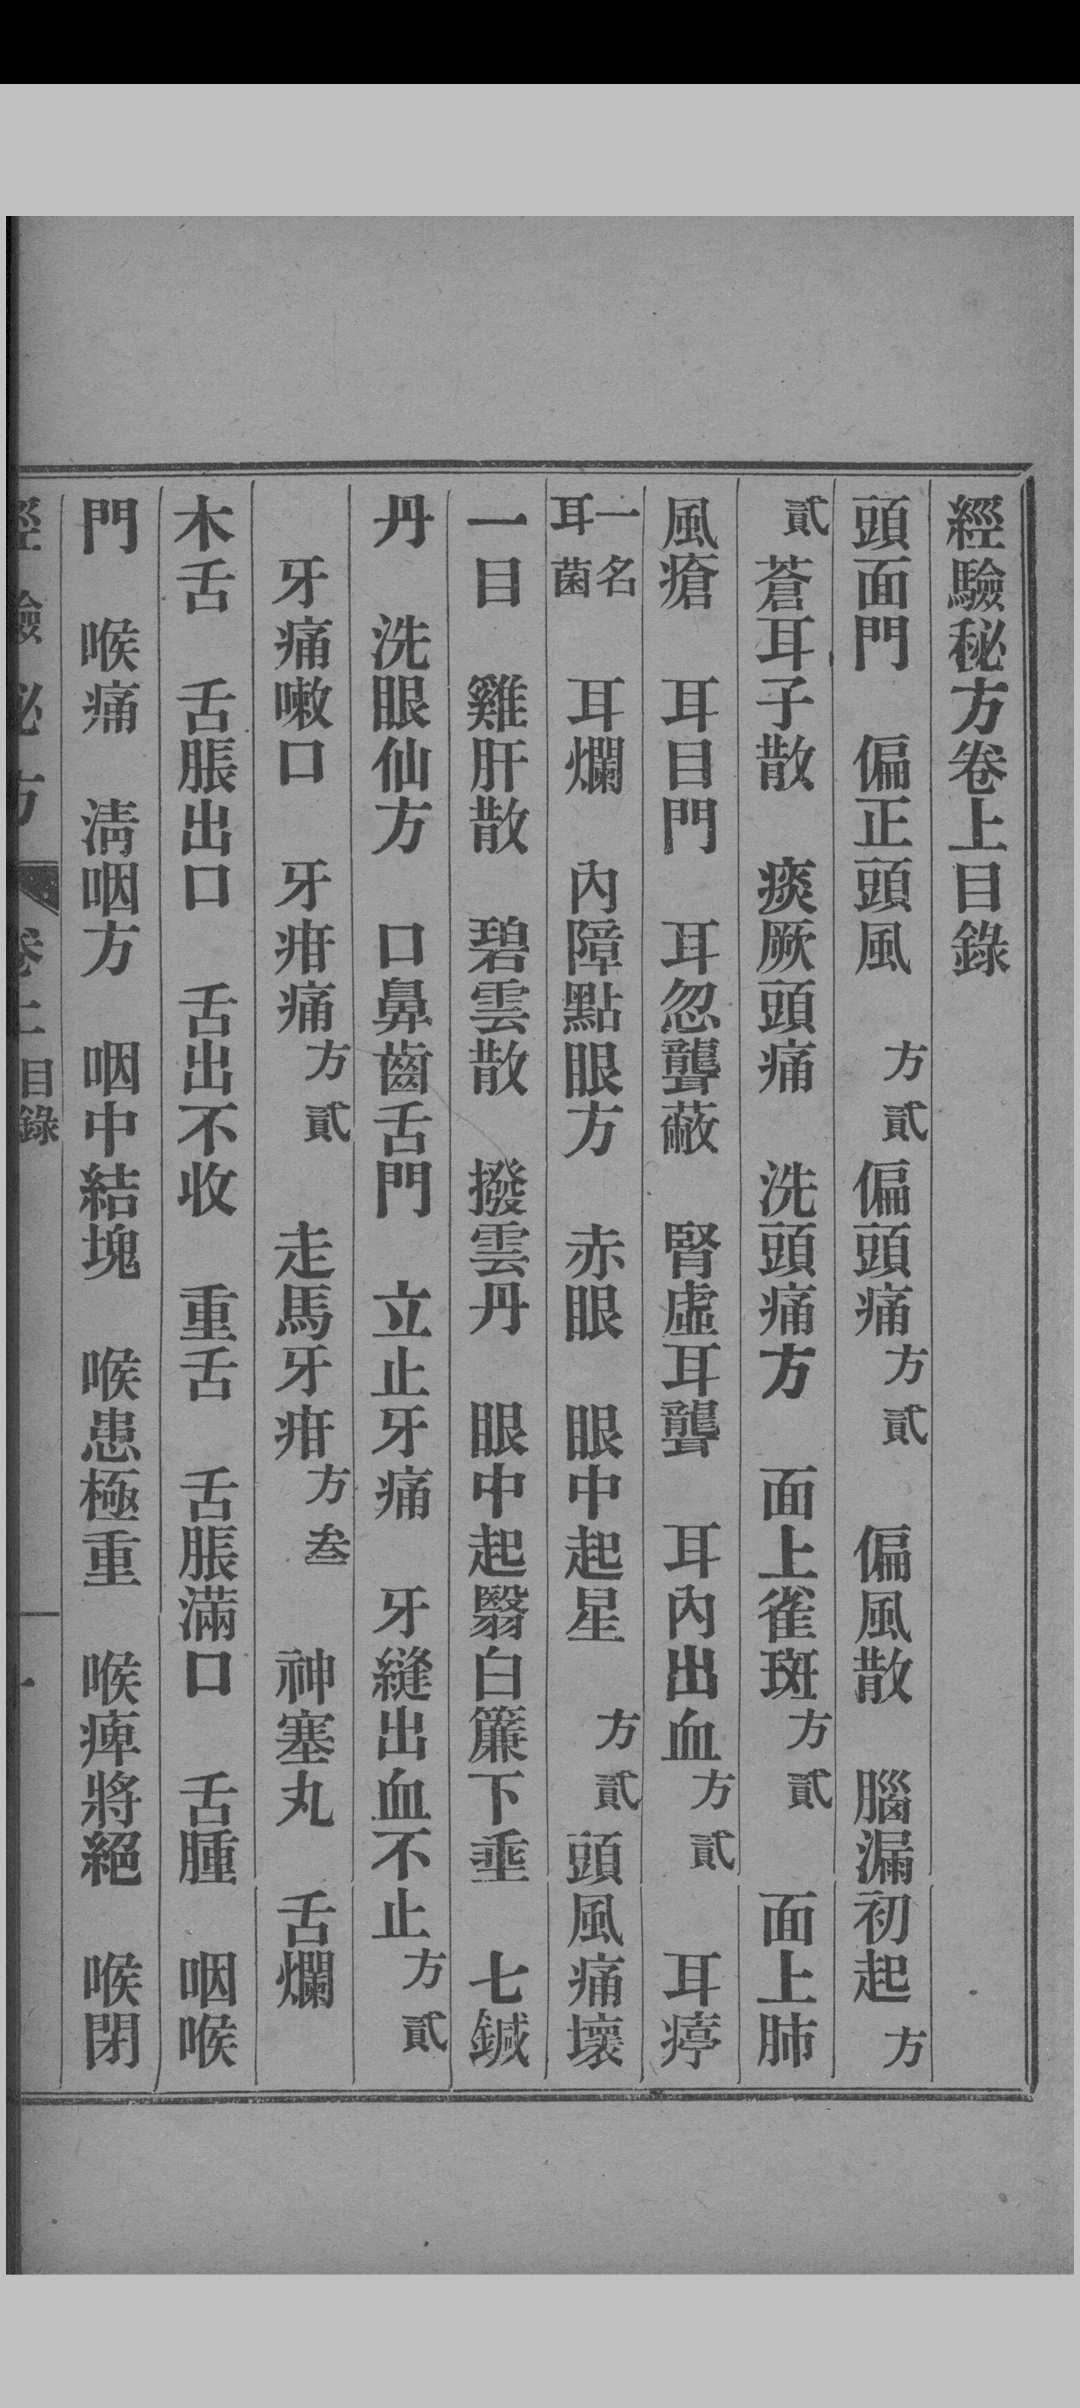 經驗秘方卷上目錄
頭面門　偏正頭風方貳　偏頭痛方貳　偏風散　腦漏初起方
貳　蒼耳子散　痰厥頭痛　洗頭痛方　面上雀斑方貳　面上肺
風瘡　耳目門　耳忽聾蔽　腎虛耳聾　耳內出血方貳　耳痔
一名耳菌　耳爛　內障點眼方　赤眼　眼中起星方貳　頭風痛壞
一目　雞肝散　碧雲散　撥雲丹　眼中起翳白簾下垂　七鍼
丹　洗眼仙方　口鼻齒舌門　立止牙痛　牙縫出血不止方貳
牙痛嗽口　牙疳痛方貳　走馬牙疳方叁　神塞丸　舌爛
木舌　舌脹出口　舌出不收　重舌　舌脹滿口　舌腫　咽喉
門　喉痛　淸咽方　咽中結塊　喉患極重　喉痺將絕　喉閉
經驗秘方　卷上目錄　一